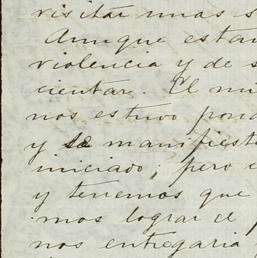 visitar unas s
Aunque estar
violencia y de s
cientar. El mi
nos estuvo pond
y se manifiest
iniciado; pero
y tenemos que
mos lograr el p
nos entregaria